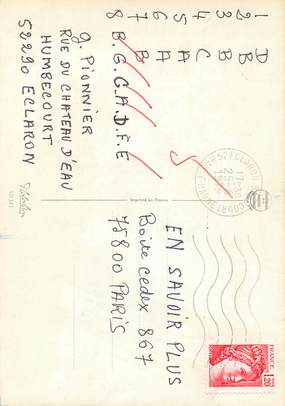 1 D
2 B
3 B
4 C
5 A
6 A
7 B
8 B.G.C.A.D.F.E
5
g. PIONNIER
RUE DU CHATEAU D'EAU
HUMBECOURT
52290 ECLARON
EN SAVOIR PLUS
Boite Cedex 867
75800 PARIS
Imprimé en France
52 ECLARON
17H30
25-
19
FRANCE
1,20